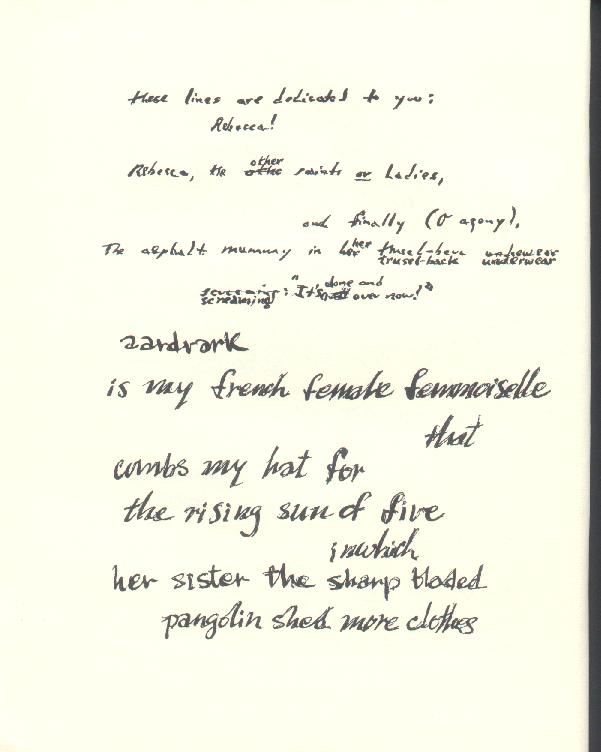 these lines are dedicated to you:
Rebecca!
Rebecca, the other saints or Ladies,
and finally (O agony),
The asphalt mummy in her trusel-back underwear
screaming: "It's done and over now!"
aardvark
is my french female femmoiselle
that
combs my hat for
the rising sun of five
in which
her sister the sharp bladed
pangolin shed more clothes